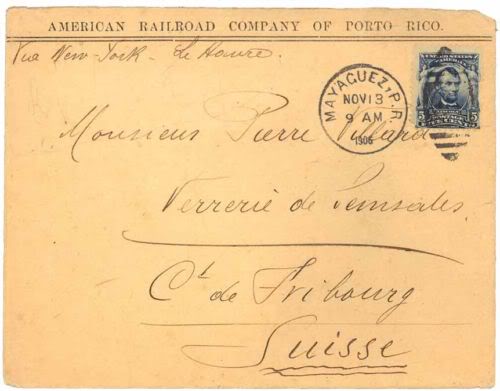 AMERICAN RAILROAD COMPANY OF PORTO RICO.
Via New-York - Le Havre.
MAYAGUEZ, P.R.
NOV 13
9 AM
1906
5 5
Monsieur Pierre Villard
Verrerie de Semsales
Ct. de Fribourg
Suisse